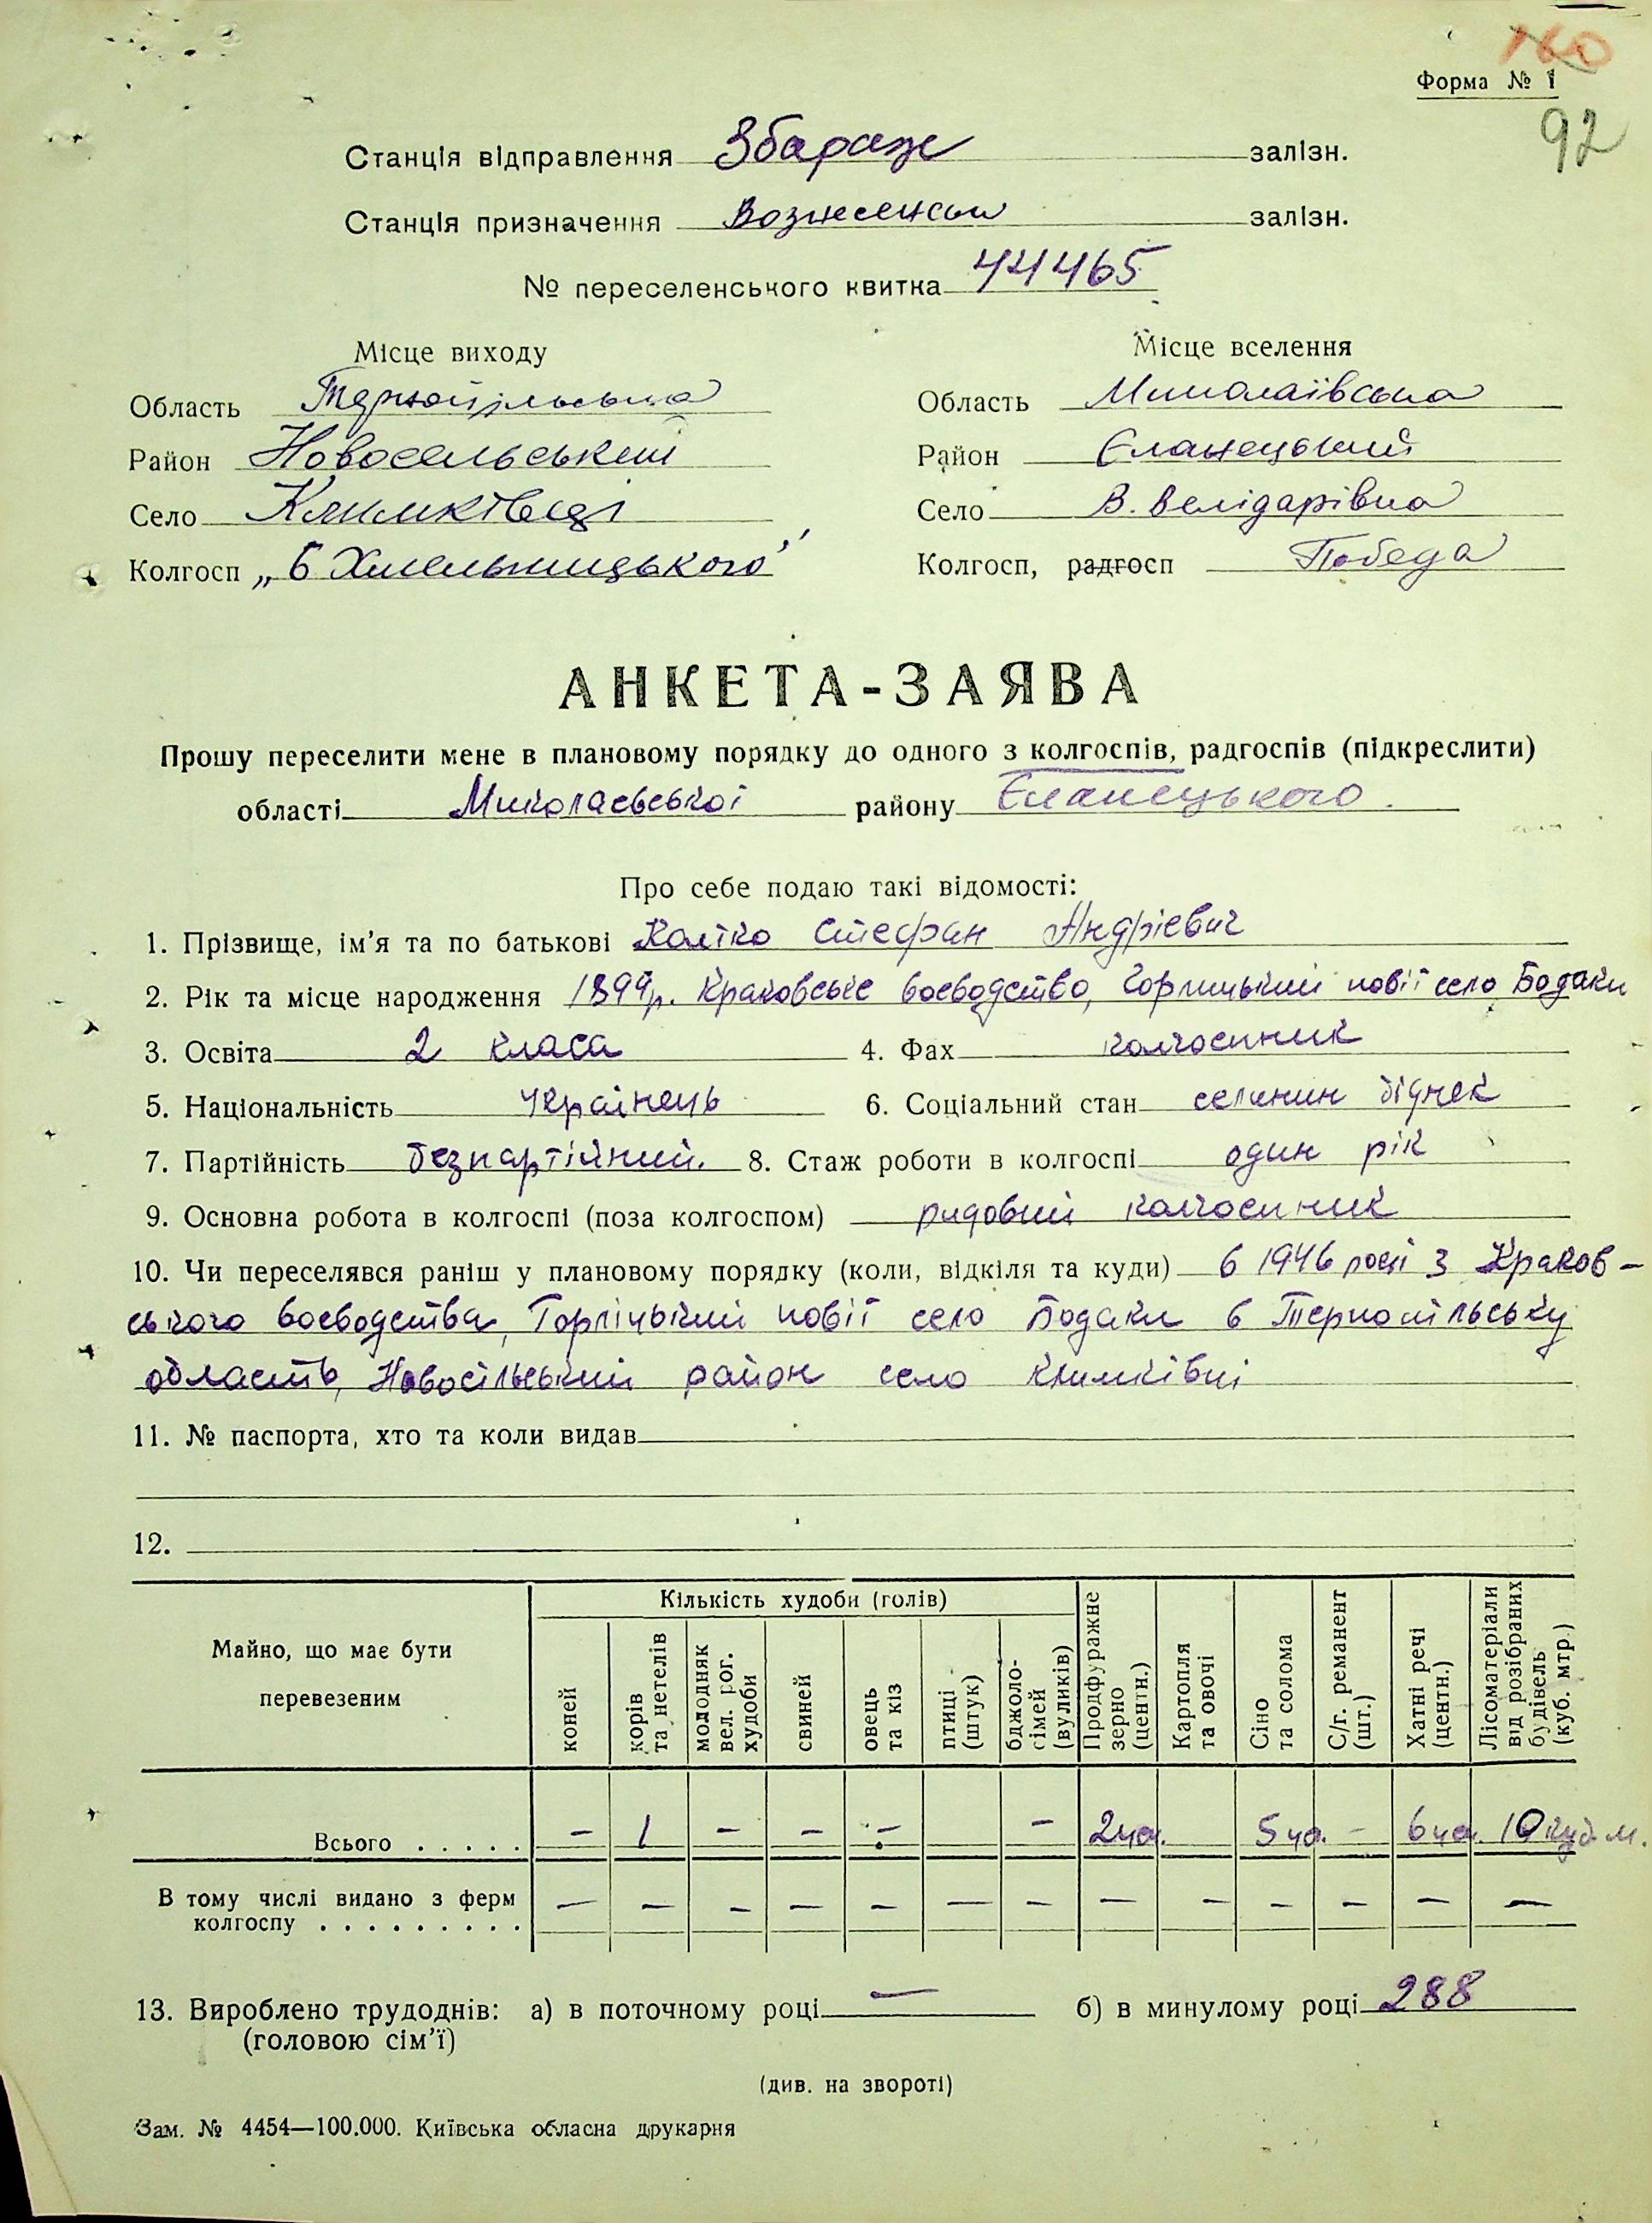 160
Форма № 1
92
Станція відправлення Збараж залізн.
Станція призначення Вознесенськ залізн.
№ переселенського квитка 44465
Місце виходу
Область Тернопільська
Район Новосельський
Село Климківці
Колгосп „Б Хмельницького"
Місце вселення
Область Миколаївська
Район Єланецький
Село В. Велідарівка
Колгосп, радгосп Победа
АНКЕТА-ЗАЯВА
Прошу переселити мене в плановому порядку до одного з колгоспів, радгоспів (підкреслити)
області Миколаєвської району Єланецького.
Про себе подаю такі відомості:
1. Прізвище, ім'я та по батькові Колтко Стефан Андрієвич
2. Рік та місце народження 1899р. Краковське воєводство, Горлицький повіт село Бодаки
3. Освіта 2 класа 4. Фах колгоспник
5. Національність українець 6. Соціальний стан селянин бідняк
7. Партійність безпартійний. 8. Стаж роботи в колгоспі один рік
9. Основна робота в колгоспі (поза колгоспом) рядовий колгоспник
10. Чи переселявся раніш у плановому порядку (коли, відкіля та куди) в 1946 році з Краков-
ського воєводства, Горліцький повіт село Бодаки в Тернопільську
область, Новосільський район село Климківці
11. № паспорта, хто та коли видав
12.
Майно, що має бути перевезеним
Кількість худоби (голів)
коней
корів та нетелів
молодняк вел. рог. худоби
свиней
овець та кіз
птиці (штук)
бджоло-сімей (вуликів)
Продфуражне зерно (центн.)
Картопля та овочі
Сіно та солома
С/г. реманент (шт.)
Хатні речі (центн.)
Лісоматеріали від розібраних будівель (куб. мтр.)
Всього . . . . . — 1 — — — — 2 цн. 5 цн. — 6 цн. 10 куб. м.
В тому числі видано з ферм
колгоспу . . . . . . . . . — — — — — — — — — — — — —
13. Вироблено трудоднів: а) в поточному році — б) в минулому році 288
(головою сім'ї)
(див. на звороті)
Зам. № 4454—100.000. Київська обласна друкарня